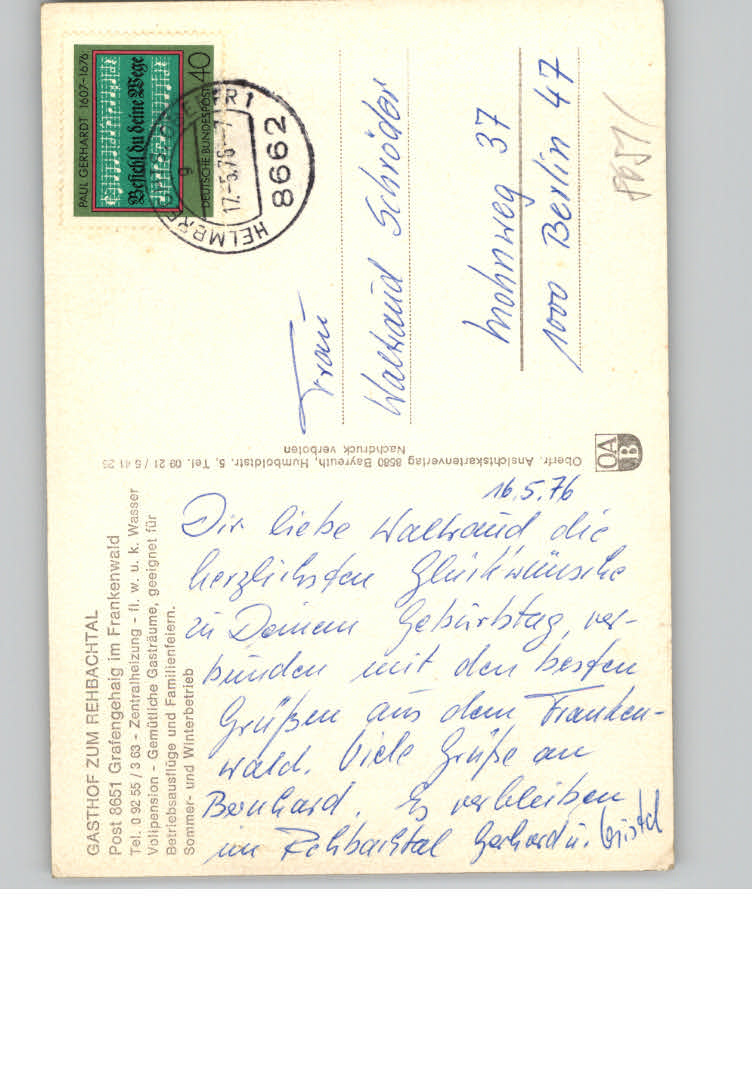 GASTHOF ZUM REHBACHTAL
Post 8651 Grafengehaig im Frankenwald
Tel. 0 92 55 / 3 63 - Zentralheizung - fl. w. u. k. Wasser
Vollpension - Gemütliche Gasträume, geeignet für
Betriebsausflüge und Familienfeiern.
Sommer- und Winterbetrieb
16.5.76
Dir liebe Waltraud die
herzlichsten Glückwünsche
zu Deinem Geburtstag, ver-
bunden mit den besten
Grüßen aus dem Franken-
wald. Viele Grüße an
Bernhard. Es verbleiben
im Rehbachtal Gerhard u. Christel
Oberfr. Ansichtskartenverlag 8580 Bayreuth, Humboldtstr. 5, Tel. 09 21 / 6 41 25
Nachdruck verboten
OA
B
PAUL GERHARDT 1607-1676
Befiehl du deine Wege
DEUTSCHE BUNDESPOST
40
HELMBRECHTS
1
17.-5.76-7
8662
Frau
Waltraud Schröder
Mohnweg 37
1000 Berlin 47